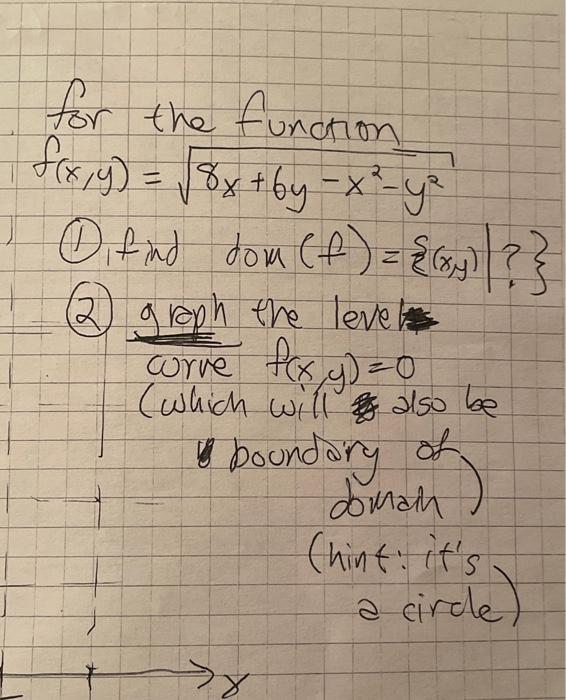 for the function
f(x,y) = √8x+6y-x²-y²
① find dom (f) = {(x,y)|?}
② graph the level
curve f(x,y)=0
(which will also be
boundary of
domain)
(hint: it's
a circle)
x